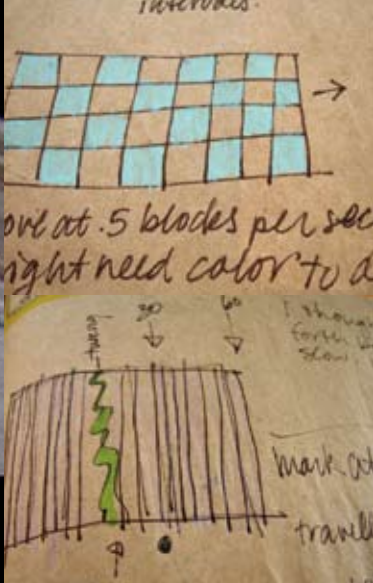 intervals.
ove at .5 blocks per sec
ight need color to a
30
60
I though
forth
slow.
mark at
travell